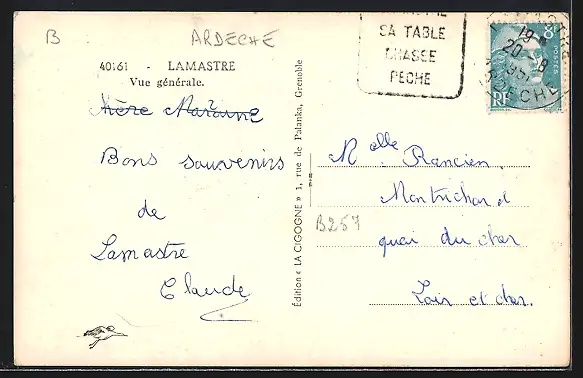 B
ARDECHE
40161 - LAMASTRE
Vue générale.
Bons souvenirs
de
Lamastre
Claude
Edition « LA CIGOGNE » 1, rue de Palanka, Grenoble
SA TABLE
CHASSE
PECHE
19 H
20 - 8
ARDECHE
8F
POSTES
RF
Melle Rancien.
Montrichard
B257
quai du cher
Loir et cher.